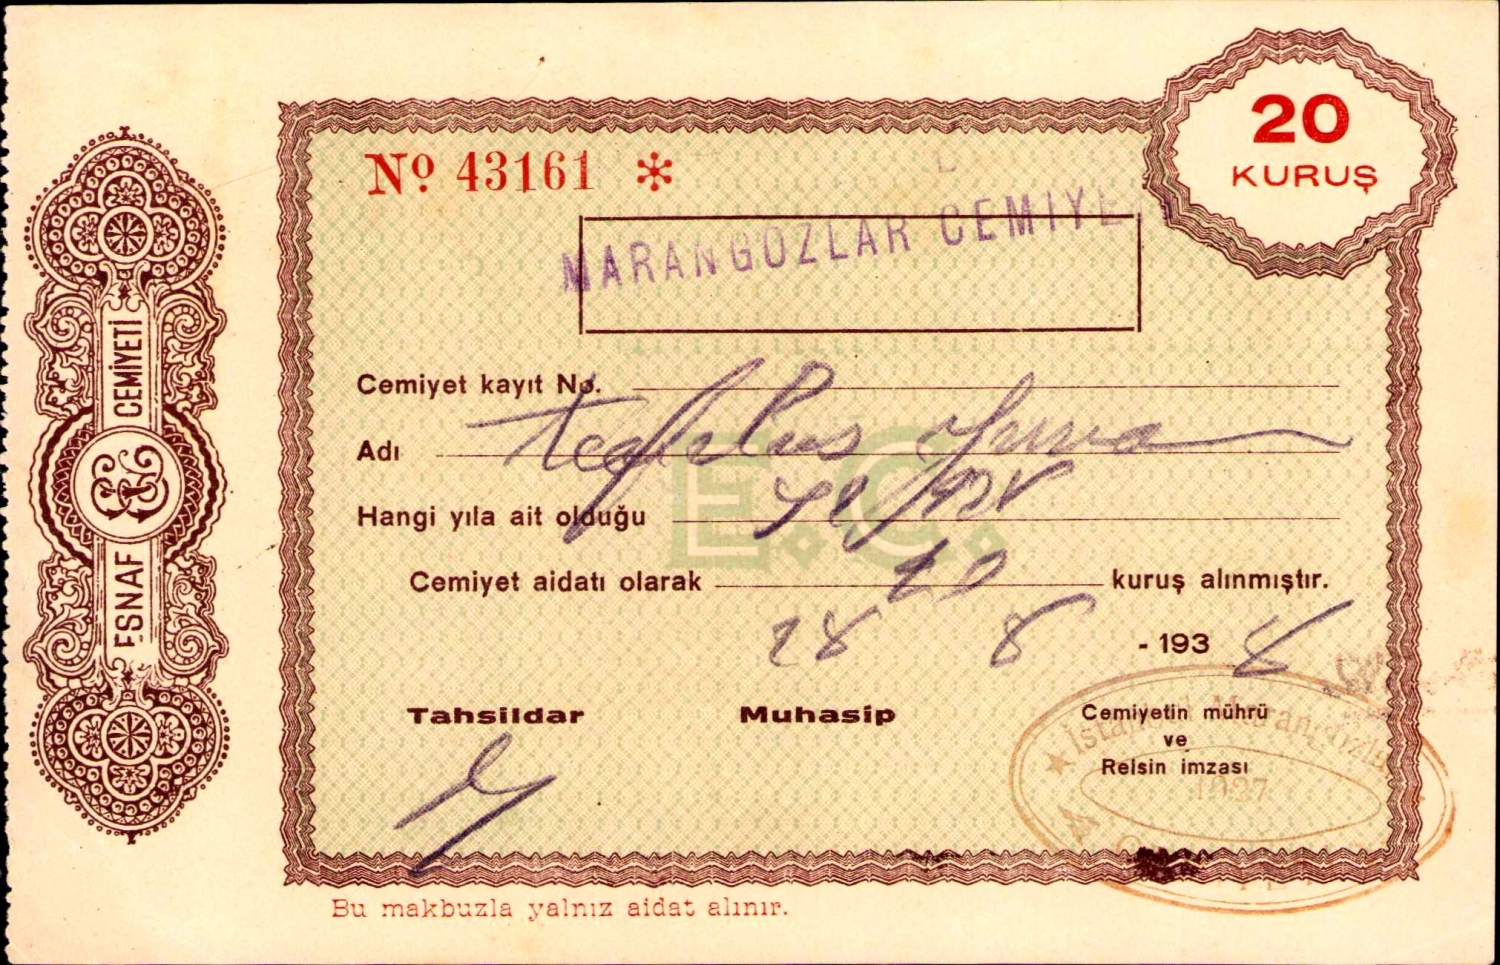 20
KURUŞ
Nº 43161 *
MARANGOZLAR CEMİYE
ESNAF CEMİYETİ
Cemiyet kayıt No.
Adı
E.C.
Hangi yıla ait olduğu
Cemiyet aidatı olarak 20 kuruş alınmıştır.
28 8 - 193 8
Tahsildar Muhasip Cemiyetin mührü
ve
Reisin imzası
İstanbul Marangozlar
1927
Bu makbuzla yalnız aidat alınır.